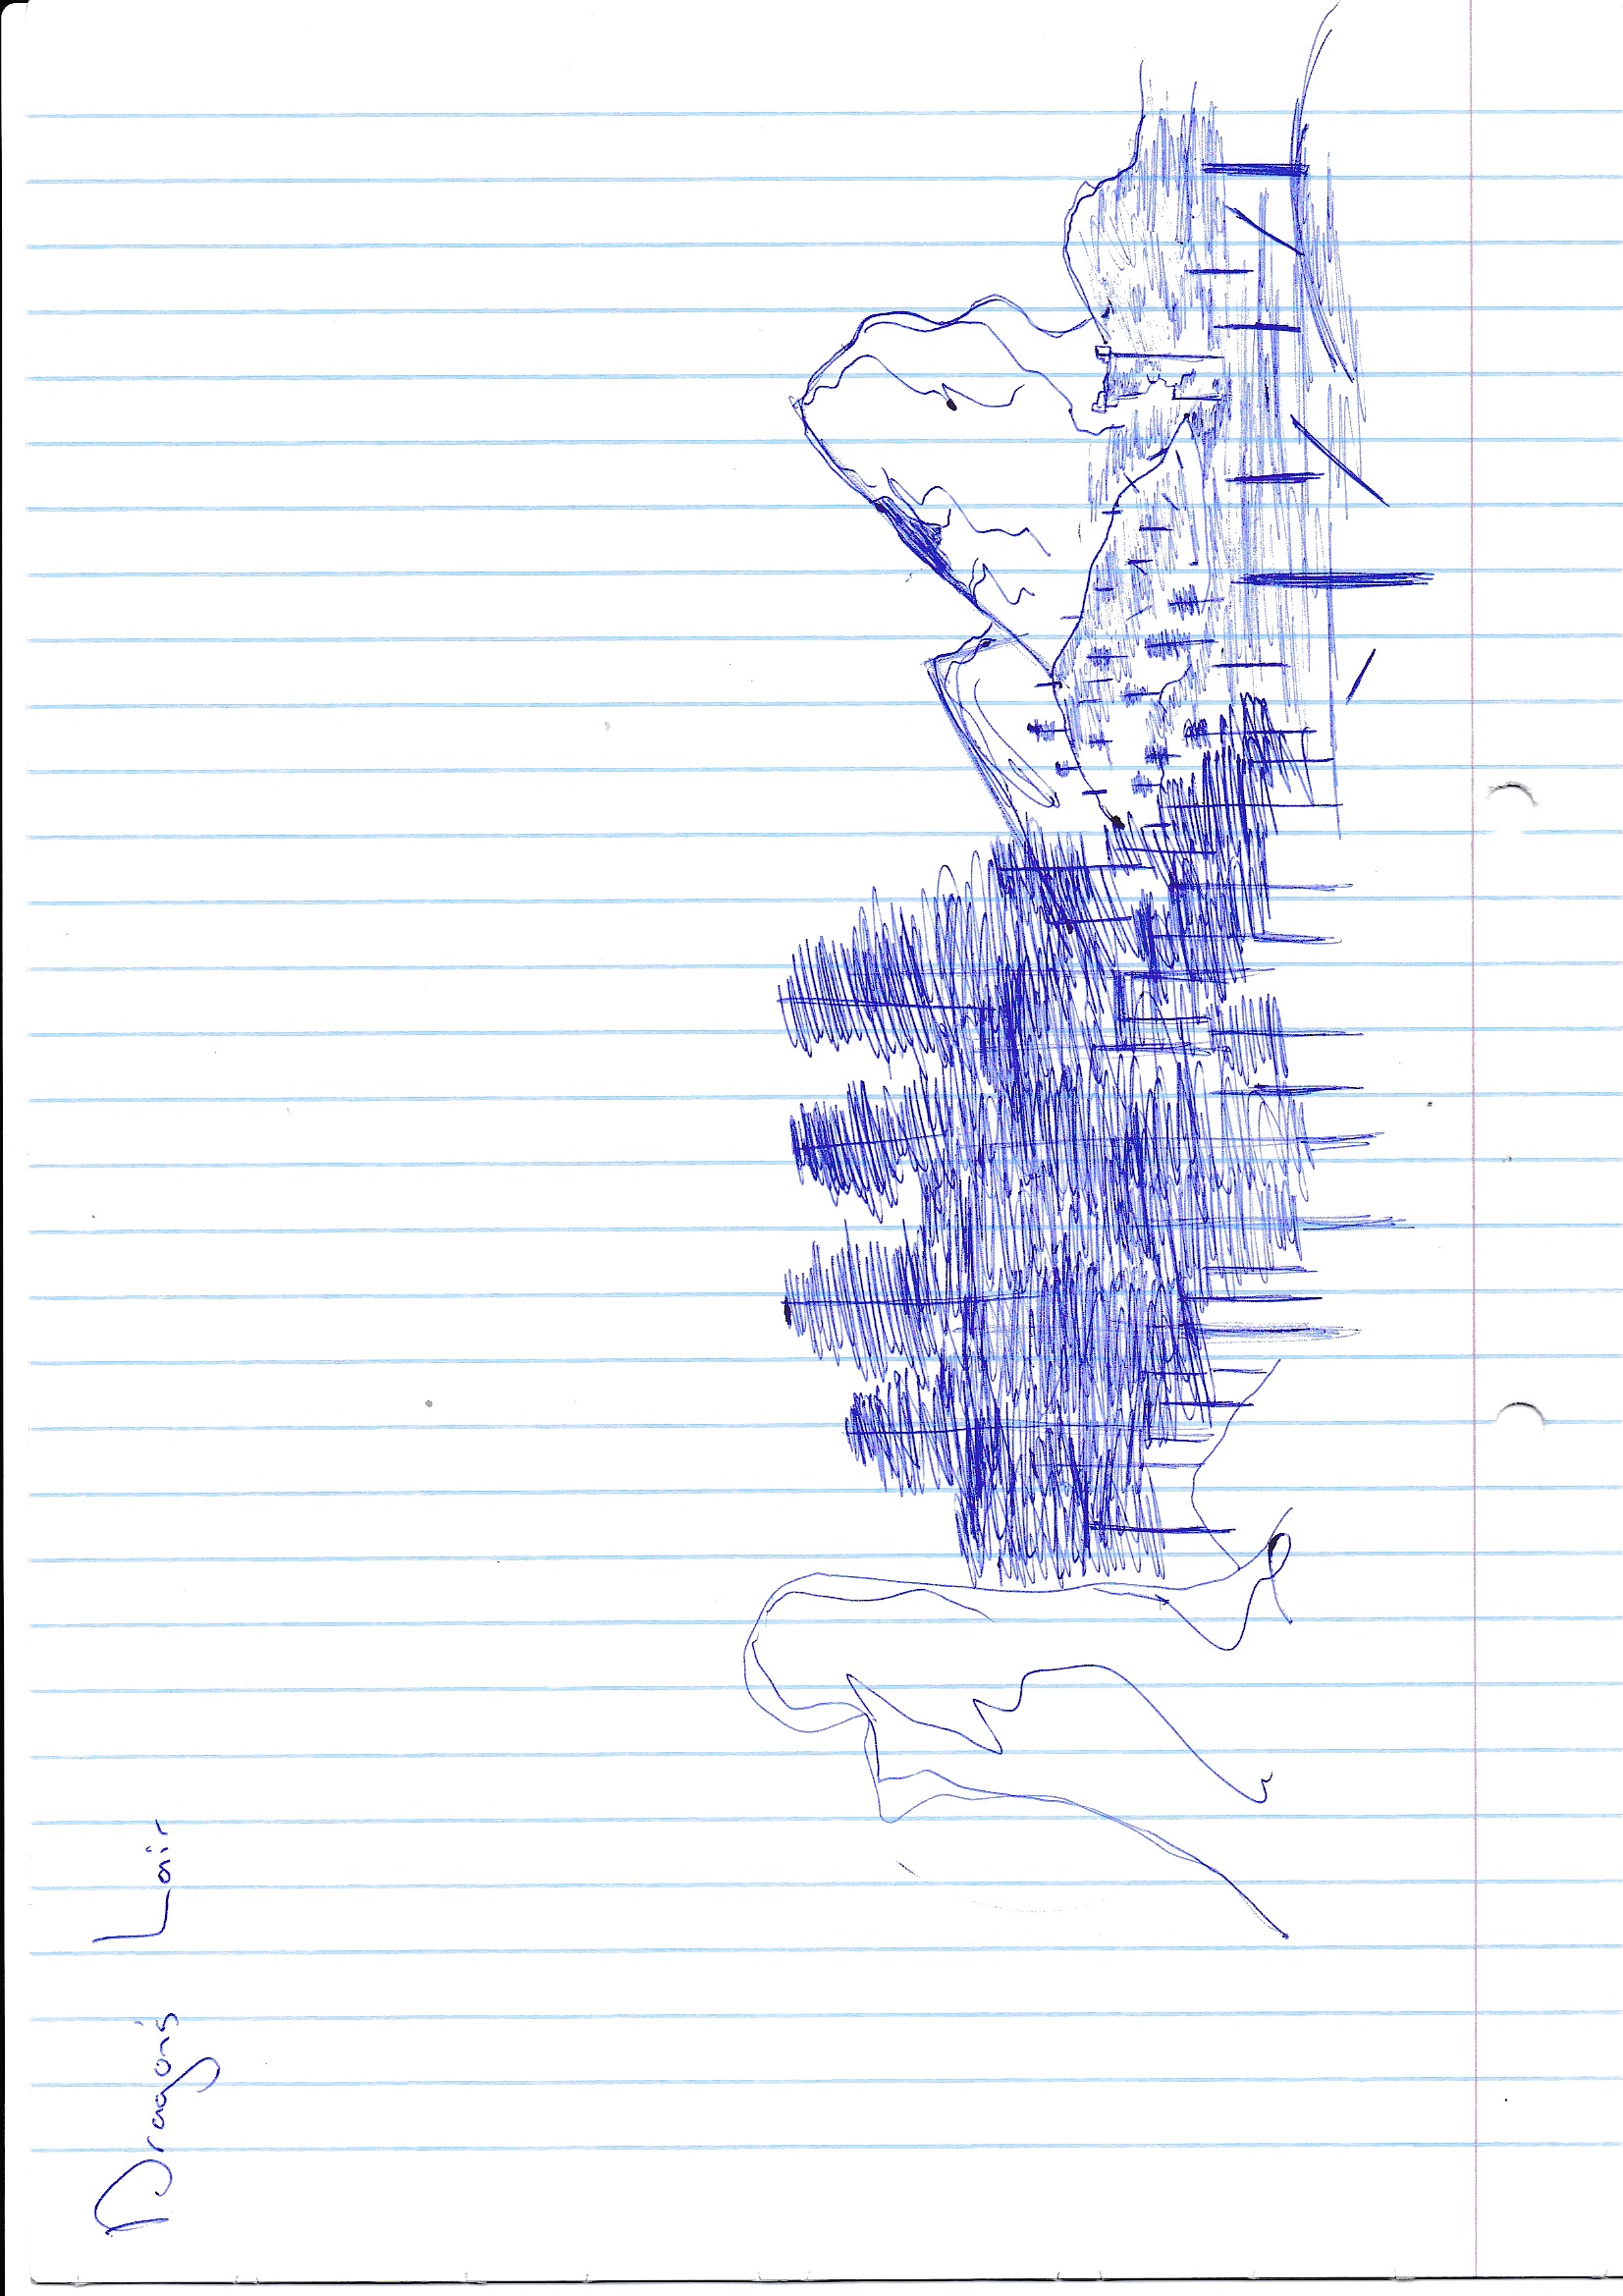 Dragon's Lair